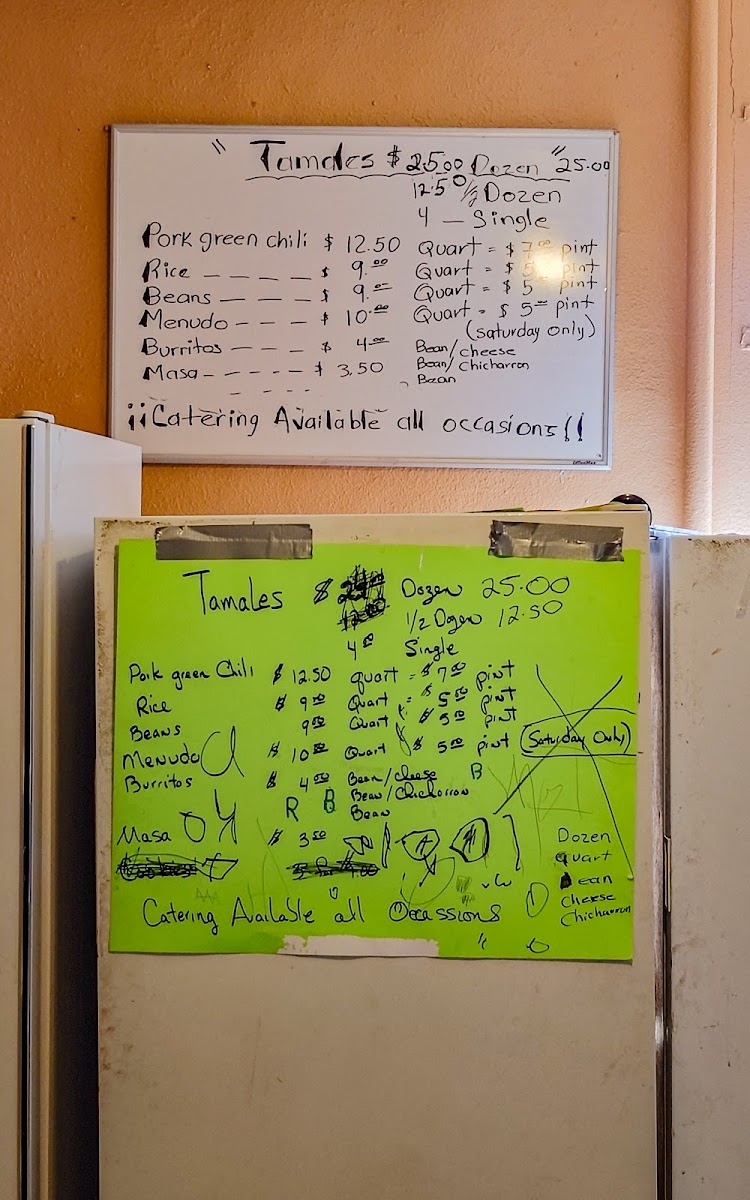 " Tamales $ 25.00 Dozen " 25.00
12.50 1/2 Dozen
4 — Single
Pork green chili $ 12.50 Quart = $ 7.00 pint
Rice ---- $ 9.00 Quart = $ 5 pint
Beans --- $ 9.00 Quart = $ 5 pint
Menudo --- $ 10.00 Quart = $ 5.00 pint
(saturday only)
Burritos --- $ 4.00 Bean/cheese
Bean/chicharron
Masa ---- $ 3.50 Bean
¡¡Catering Available all occasions!!
Tamales $ Dozen 25.00
1/2 Dozen 12.50
4.00 Single
Pork green Chili $ 12.50 quart = $ 7.00 pint
Rice $ 9.00 Quart = $ 5.00 pint
Beans 9.00 Quart $ 5.00 pint
Menudo $ 10.00 Quart $ 5.00 pint (Saturday Only)
Burritos $ 4.00 Bean/cheese B
R B Bean/Chicharron
Bean
Masa $ 3.50
Dozen
quart
Bean
cheese
Chicharron
Catering Available all Occassions